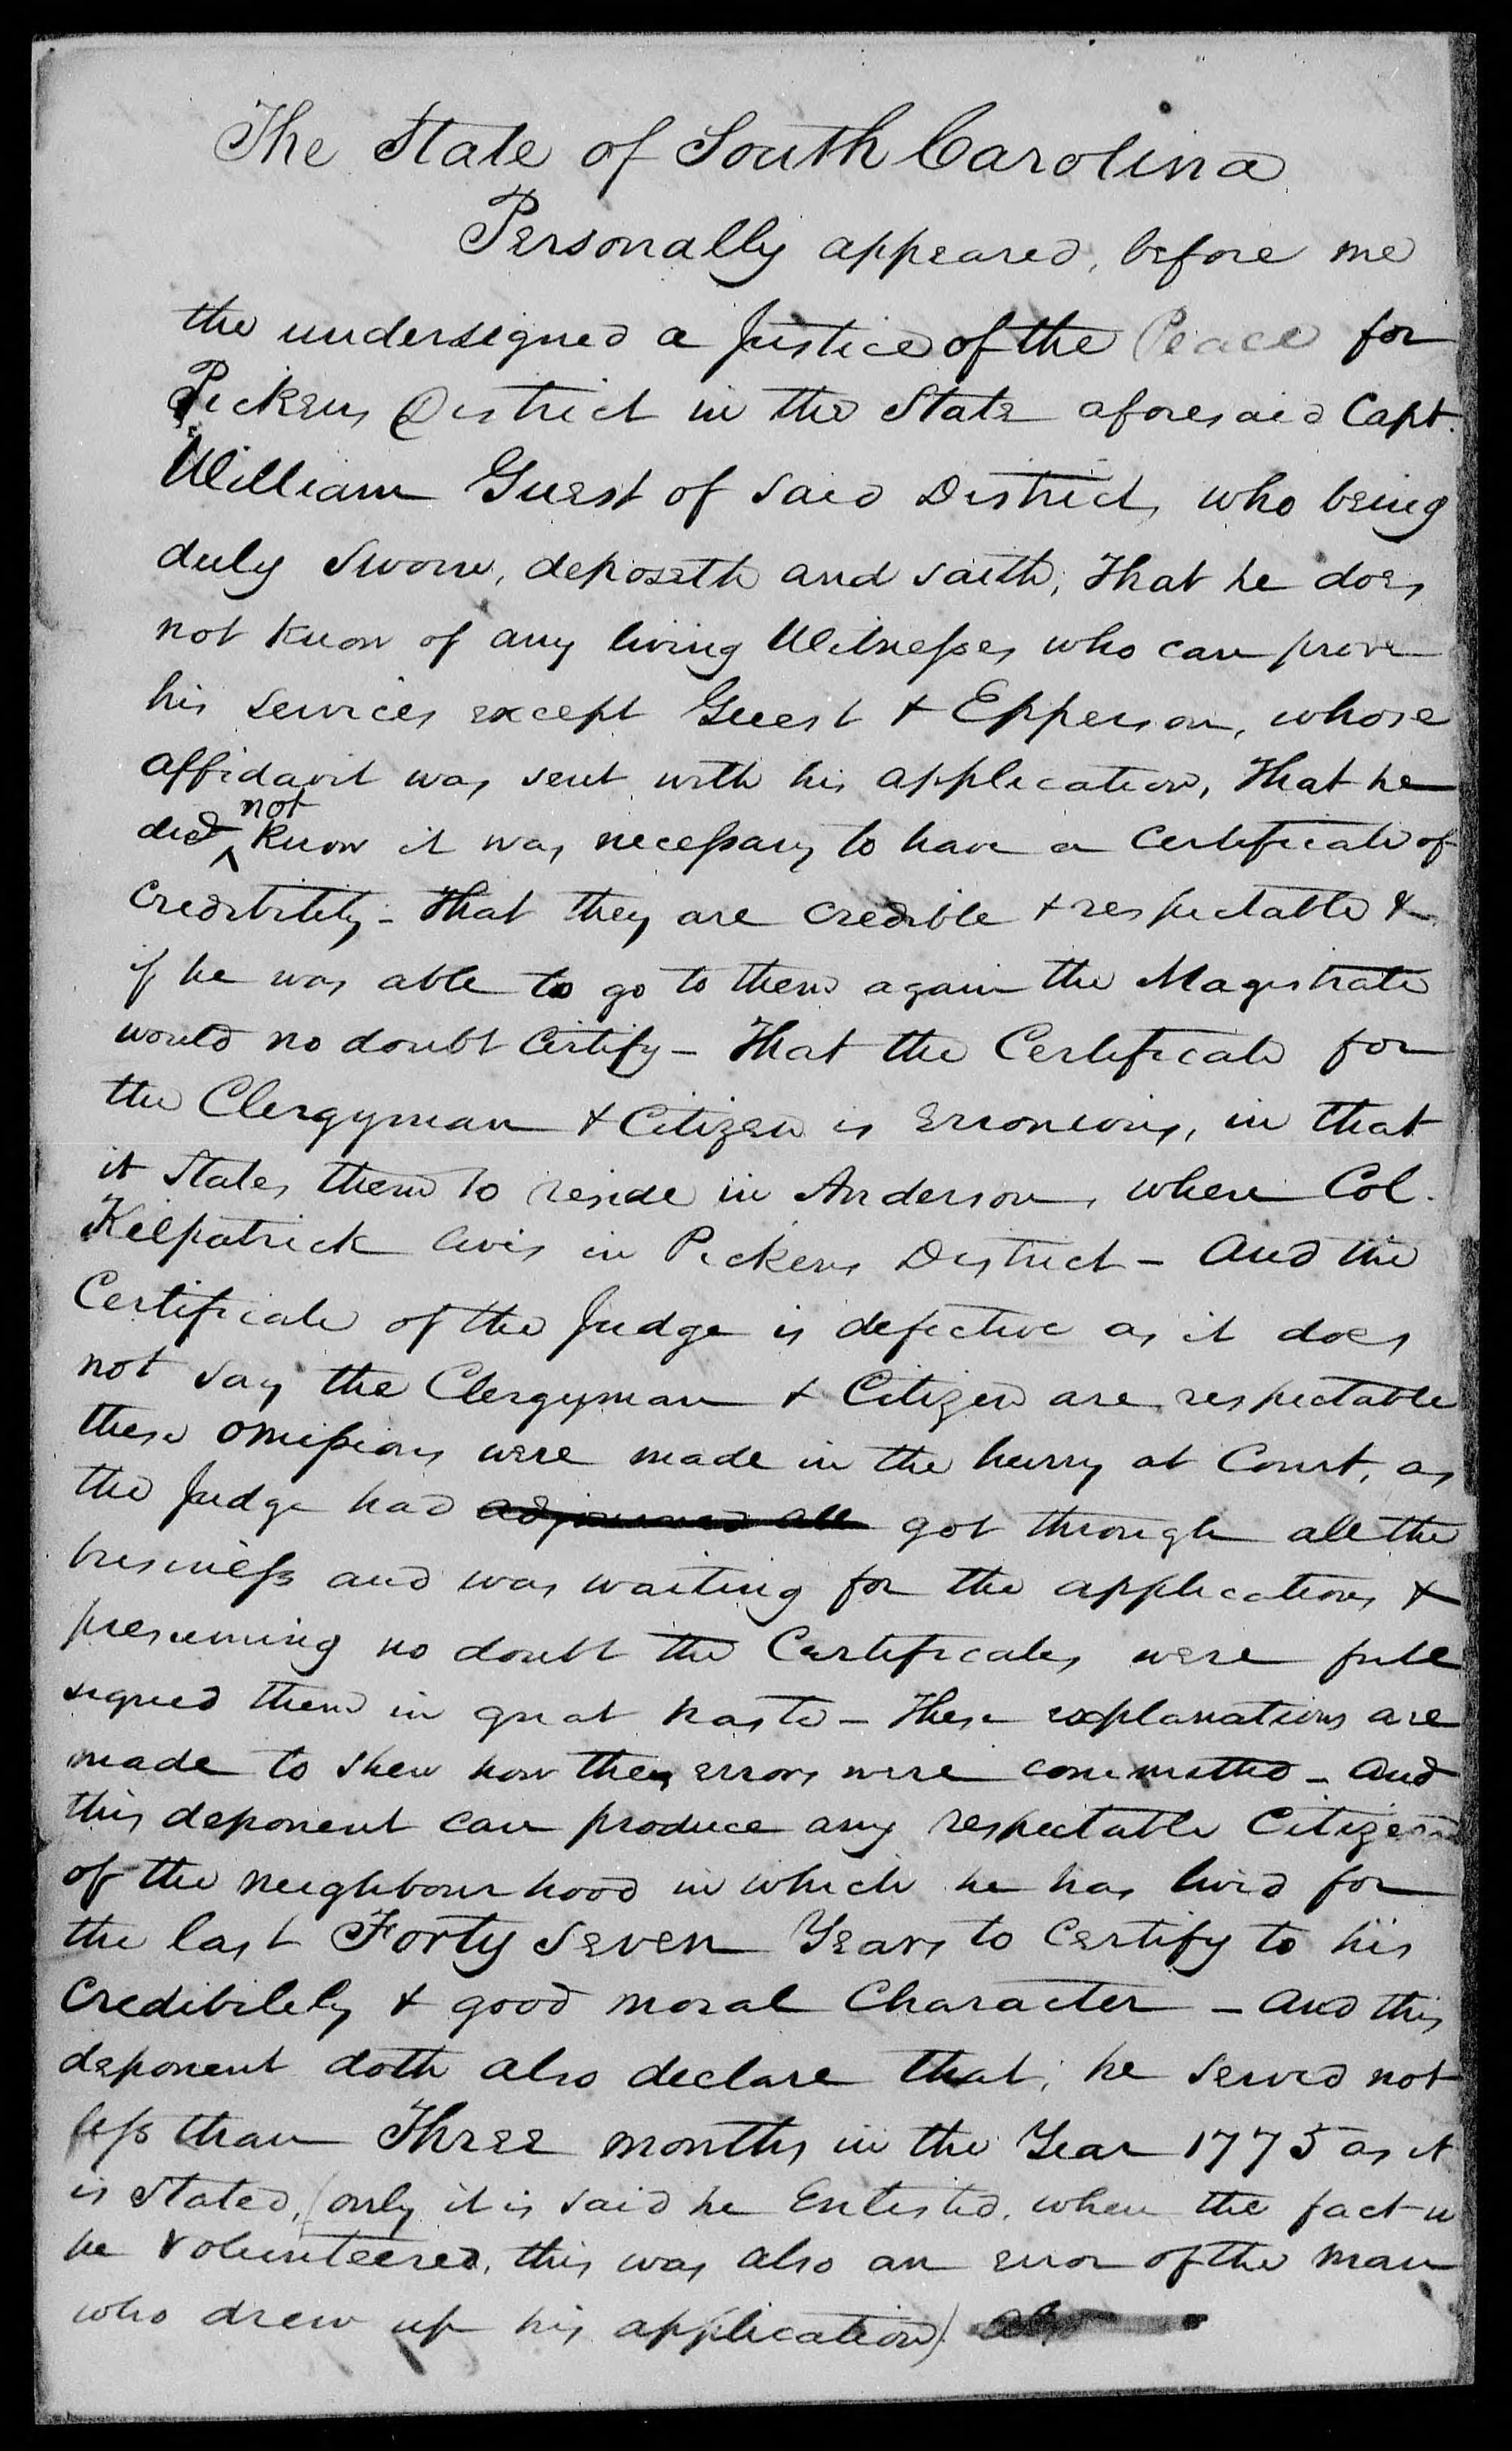 The State of South Carolina
Personally appeared, before me
the undersigned a Justice of the Peace for
Pickens District in the State aforesaid Capt.
William Guest of said District, who being
duly sworn, deposeth and saith, That he does
not know of any living Witnesses who can prove
his services except Guest & Epperson, whose
affidavit was sent with his application, That he
did not know it was necessary to have a Certificate of
credibility - That they are credible & respectable &
if he was able to go to them again the Magistrate
would no doubt Certify - That the Certificate for
the Clergyman & Citizen is Erroneous, in that
it States them to reside in Anderson, where Col.
Kilpatrick lives in Pickens District - And the
Certificate of the Judge is defective as it does
not say the Clergyman & Citizen are respectable
these omissions were made in the hurry at Court, as
the Judge had adjourned all got through all the
business and was waiting for the applications &
presuming no doubt the Certificates were full
signed them in great haste - These explanations are
made to shew how they errors were committed - And
this deponent can produce any respectable Citizen
of the neighbourhood in which he has lived for
the last Forty Seven Years to Certify to his
Credibility & good moral Character - And this
deponent doth also declare that, he served not
less than Three months in the Year 1775 as it
is Stated, (only it is said he Enlisted, when the fact is
he volunteered, this was also an error of the man
who drew up his application)